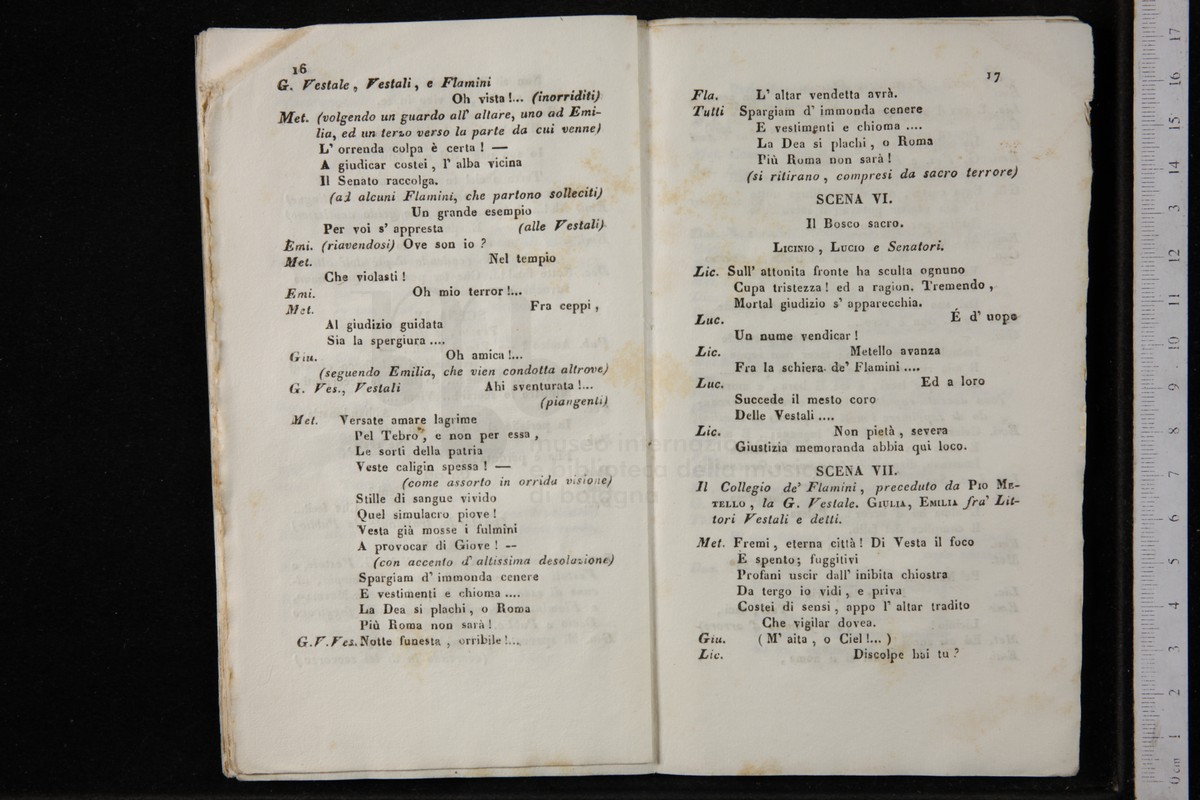 16
G. Vestale, Vestali, e Flamini
Oh vista!... (inorriditi)
Met. (volgendo un guardo all' altare, uno ad Emi-
lia, ed un terzo verso la parte da cui venne)
L' orrenda colpa è certa! —
A giudicar costei, l' alba vicina
Il Senato raccolga.
(ad alcuni Flamini, che partono solleciti)
Un grande esempio
Per voi s' appresta (alle Vestali)
Emi. (riavendosi) Ove son io?
Met. Nel tempio
Che violasti!
Emi. Oh mio terror!...
Met. Fra ceppi,
Al giudizio guidata
Sia la spergiura ....
Giu. Oh amica!...
(seguendo Emilia, che vien condotta altrove)
G. Ves., Vestali Ahi sventurata!...
(piangenti)
Met. Versate amare lagrime
Pel Tebro, e non per essa,
Le sorti della patria
Veste caligin spessa! —
(come assorto in orrida visione)
Stille di sangue vivido
Quel simulacro piove!
Vesta già mosse i fulmini
A provocar di Giove! —
(con accento d' altissima desolazione)
Spargiam d' immonda cenere
E vestimenti e chioma ....
La Dea si plachi, o Roma
Più Roma non sarà!
G.V.Ves. Notte funesta, orribile!...
17
Fla. L' altar vendetta avrà.
Tutti Spargiam d' immonda cenere
E vestimenti e chioma ....
La Dea si plachi, o Roma
Più Roma non sarà!
(si ritirano, compresi da sacro terrore)
SCENA VI.
Il Bosco sacro.
Licinio, Lucio e Senatori.
Lic. Sull' attonita fronte ha sculta ognuno
Cupa tristezza! ed a ragion. Tremendo,
Mortal giudizio s' apparecchia.
Luc. É d' uopo
Un nume vendicar!
Lic. Metello avanza
Fra la schiera de' Flamini ....
Luc. Ed a loro
Succede il mesto coro
Delle Vestali ....
Lic. Non pietà, severa
Giustizia memoranda abbia qui loco.
SCENA VII.
Il Collegio de' Flamini, preceduto da Pio Me-
tello, la G. Vestale. Giulia, Emilia fra' Lit-
tori Vestali e detti.
Met. Fremi, eterna città! Di Vesta il foco
È spento; fuggitivi
Profani uscir dall' inibita chiostra
Da tergo io vidi, e priva
Costei di sensi, appo l' altar tradito
Che vigilar dovea.
Giu. (M' aita, o Ciel!...)
Lic. Discolpe hai tu?
museo internazionale
e biblioteca della musica
di bologna
0 cm 1 2 3 4 5 6 7 8 9 10 11 12 13 14 15 16 17